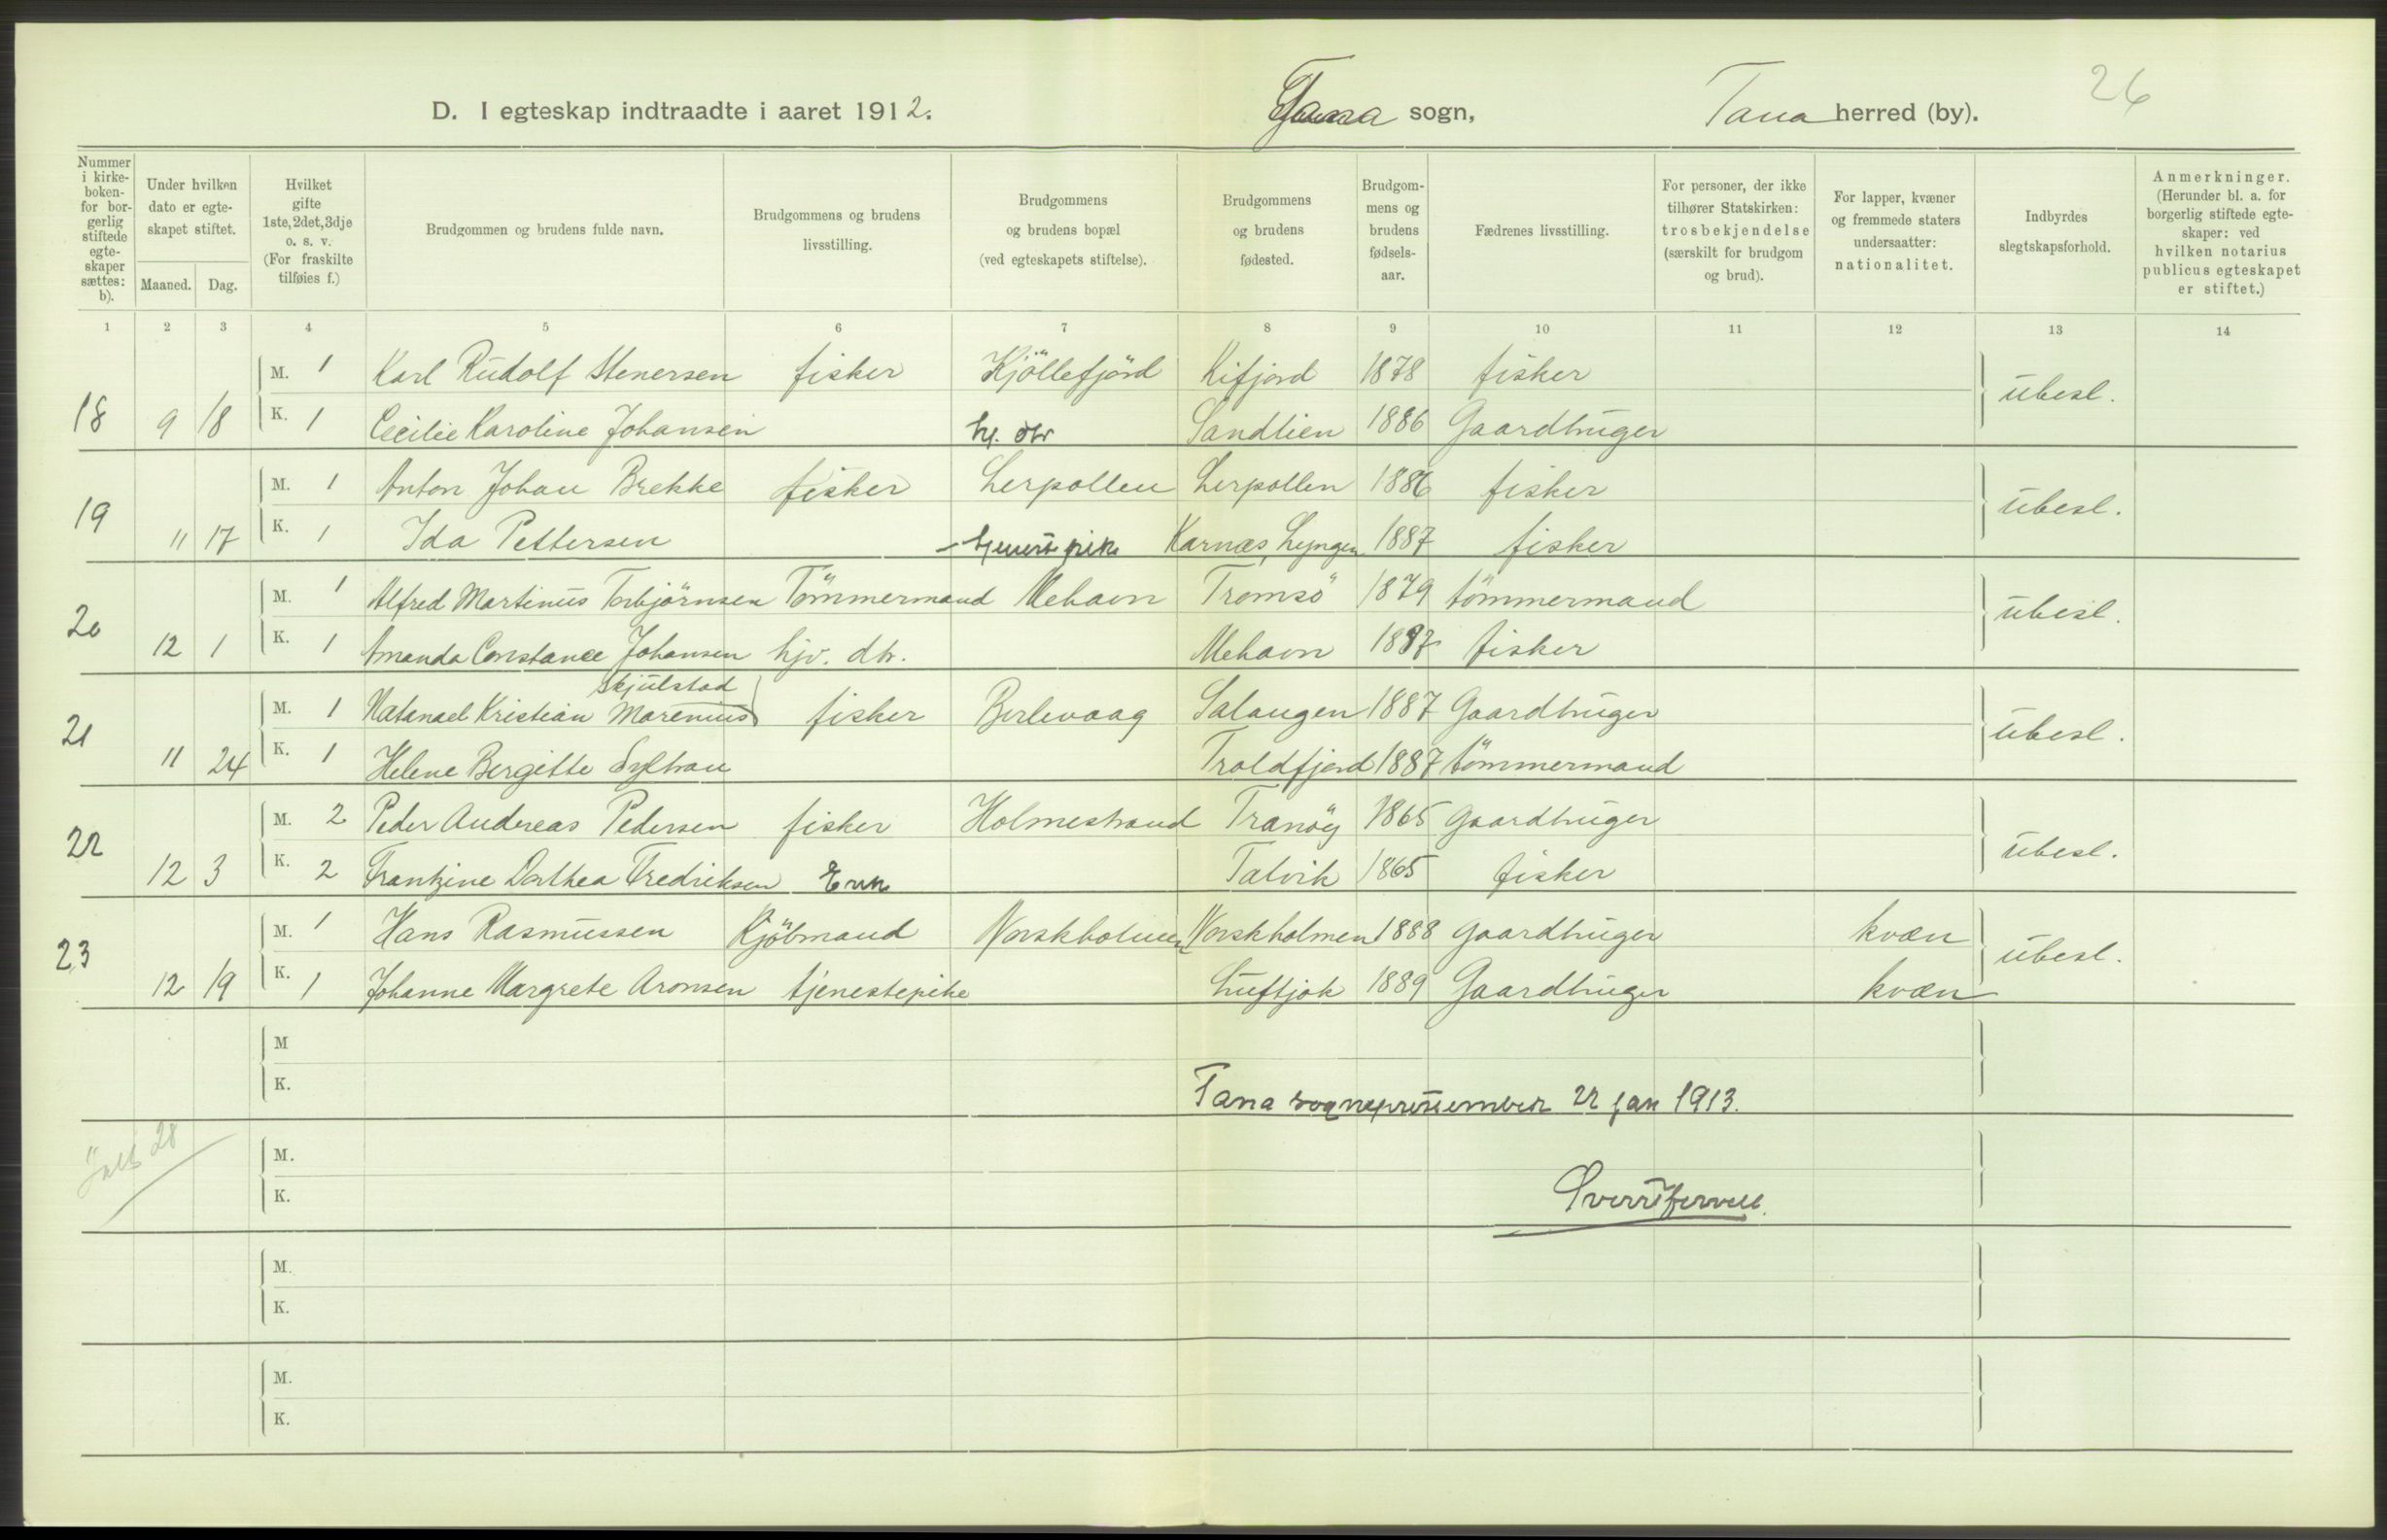 26
D. I egteskap indtraadte i aaret 1912. Tana sogn, Tana herred (by).
Nummer i kirke-boken- for bor-gerlig stiftede egte-skaper sættes: b). Under hvilken dato er egte-skapet stiftet. Maaned. Dag. Hvilket gifte 1ste, 2det, 3dje o. s. v. (For fraskilte tilføies f.) Brudgommen og brudens fulde navn. Brudgommens og brudens livsstilling. Brudgommens og brudens bopæl (ved egteskapets stiftelse). Brudgommens og brudens fødested. Brudgom-mens og brudens fødsels-aar. Fædrenes livsstilling. For personer, der ikke tilhører Statskirken: trosbekjendelse (særskilt for brudgom og brud). For lapper, kvæner og fremmede staters undersaatter: nationalitet. Indbyrdes slegtskapsforhold. Anmerkninger. (Herunder bl. a. for borgerlig stiftede egte-skaper: ved hvilken notarius publicus egteskapet er stiftet.)
1 2 3 4 5 6 7 8 9 10 11 12 13 14
M. 1 Karl Rudolf Stenersen fisker Kjöllefjord Kifjord 1878 fisker
18 9 18 K. 1 Cecilie Karoline Johansen hj. dtr Sandlien 1886 Gaardbruger ubesl.
M. 1 Anton Johan Brekke fisker Lerpollen Lerpollen 1886 fisker
19 11 17 K. 1 Ida Pettersen Karnæs, Lyngen 1887 fisker ubesl.
M. 1 Alfred Martinus Torbjörnsen Tömmermand Mehavn Tromsö 1879 tömmermand
20 12 1 K. 1 Amanda Constance Johansen hjv. dtr. Mehavn 1887 fisker ubesl.
Skjulstad
M. 1 Natanael Kristian Marenius fisker Berlevaag Salangen 1887 Gaardbruger
21 11 24 K. 1 Helene Bergitte Troldfjord 1887 tömmermand ubesl.
M. 2 Peder Andreas Pedersen fisker Holmestrand Tranöy 1865 Gaardbruger
22 12 3 K. 2 Frantzine Dorthea Fredriksen Enke Talvik 1865 fisker ubesl.
M. 1 Hans Rasmussen Kjöbmand Norskholmen Norskholmen 1888 Gaardbruger kvæn
23 12 19 K. 1 Johanne Margrete Aronsen tjenestepike Luftjok 1889 Gaardbruger kvæn ubesl.
M
K.
Tana sogneprestembede 22 jan 1913.
28
M.
K.
M.
K.
M.
K.